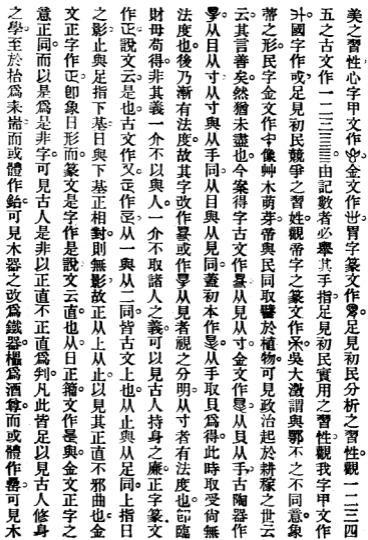 美之習性心字甲文作金文作胃字篆文作足見初民分析之習性觀一二三四
五之古文作一二三三由記數者必舉其手指足見初民實用之習性觀我字甲文作
國字作或足見初民競爭之習姓觀帝字之篆文作吳大澂謂與鄂不之不同意象
蒂之形民字金文作像艸木萌芽帝與民同取譬於植物可見政治起於耕稼之世云
云其言善矣然猶未盡也今案得字古文作从見从寸金文作从貝从手古陶器作
从目从寸从寸與从手同从目與从見同蓋初本作从手取貝爲得此時取受尙無
法度也後乃漸有法度故其字改作或作从見者視之分明从寸者有法度也卽臨
財毋苟得非其義一介不以與人一介不取諸人之義可以見古人持身之廉正字篆文
作正說文云是也古文作又作从一與从二同皆古文上也从止與从足同上指日
之影止與足指下基日與下基正相對則無影故正从上从止以見其正直不邪曲也金
文正字作卽象日形而篆文是字作是說文云直也从日正籒文作與金文正字之
意正同而以是爲是非字可見古人是非以正直不正直爲判凡此皆足以見古人修身
之學至於枱爲耒耑而或體作鉛可見木器之改爲鐵器櫑爲酒尊而或體作罍可見木